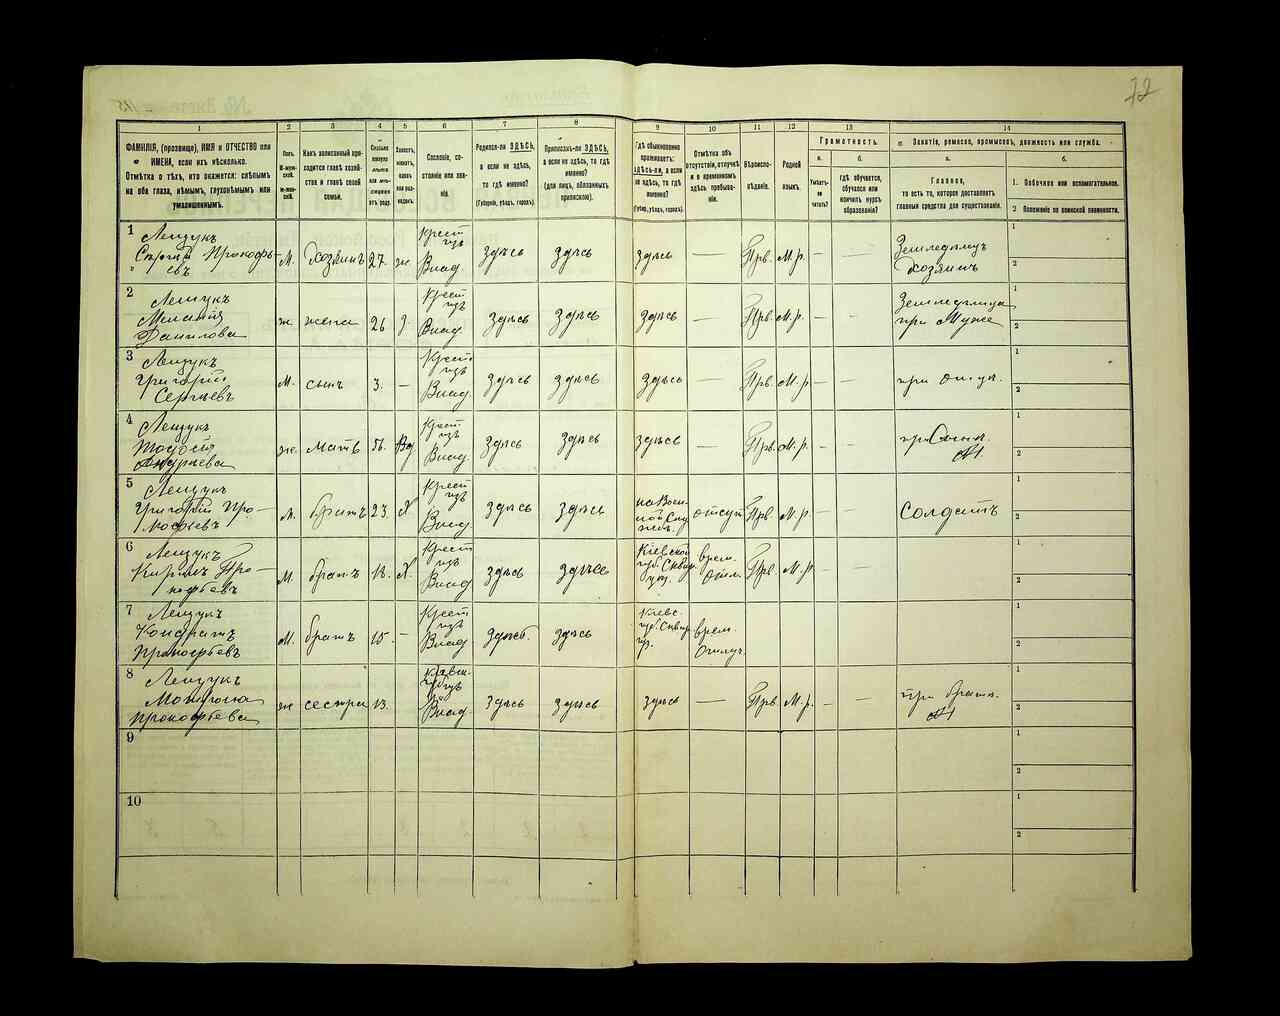 72
1
2
3
4
5
6
7
8
9
10
11
12
13
14
ФАМИЛІЯ, (прозвище), ИМЯ и ОТЧЕСТВО или
ИМЕНА, если ихъ нѣсколько.
Отмѣтка о тѣхъ, кто окажется: слѣпымъ
на оба глаза, нѣмымъ, глухонѣмымъ или
умалишеннымъ.
Полъ.
М-мужской.
Ж-женскій.
Какъ записанный при-
ходится главѣ хозяй-
ства и главѣ своей
семьи.
Сколько
минуло
лѣтъ
или мѣ-
сяцевъ
отъ роду.
Холостъ,
женатъ,
вдовъ
или раз-
веденъ.
Сословіе, со-
стояніе или зва-
ніе.
Родился-ли ЗДѢСЬ,
а если не здѣсь,
то гдѣ именно?
(Губернія, уѣздъ, городъ).
Приписанъ-ли ЗДѢСЬ,
а если не здѣсь, то гдѣ
именно?
(для лицъ, обязанныхъ
припискою).
Гдѣ обыкновенно
проживаетъ:
здѣсь-ли, а если
не здѣсь, то гдѣ
именно?
(Губер., уѣздъ, городъ).
Отмѣтка объ
отсутствіи, отлучкѣ
и о временномъ
здѣсь пребыва-
ніи.
Вѣроиспо-
вѣданіе.
Родной
языкъ.
Грамотность.
а.
Умѣетъ-
ли
читать?
б.
гдѣ обучается,
обучался или
кончилъ курсъ
образованія?
Занятіе, ремесло, промыселъ, должность или служба.
а.
Главное,
то есть то, которое доставляетъ
главныя средства для существованія.
б.
1. Побочное или вспомогательное.
2 Положеніе по воинской повинности.
1 Лещукъ
Сергій Прокофь-
евъ
М. Хозяинъ 27. ж. Крест изъ Влад. здѣсь здѣсь здѣсь — Прв. М.р. — — Земледѣлецъ
Хозяинъ
1
2
2 Лещукъ
Меланія
Данилова
ж. жена 26 з. Крест изъ Влад. здѣсь здѣсь здѣсь — Прв. М.р. — — Земледѣлица
при Мужѣ
1
2
3 Лещукъ
Григорій
Сергѣевъ
М. сынъ 3. — Крест изъ Влад. здѣсь здѣсь здѣсь — Прв. М.р. — — при отцѣ.
1
2
4 Лещукъ
Андрѣева
ж. Мать 56. Вд. Крест изъ Влад. здѣсь здѣсь здѣсь — Прв. М.р. — — при Сынѣ.
1
2
5 Лещукъ
Григорій Про-
кофьевъ
М. братъ 23. Х. Крест изъ Влад. здѣсь здѣсь на Воен-
ной Слу
жбѣ. отсут. Прв. М.р. — — Солдатъ
1
2
6 Лещукъ
Кирилъ Про-
кофьевъ
М. братъ 18. Х. Крест изъ Влад. здѣсь здѣсь Кіевской
губ. Сквир.
уѣз. врем.
Отл. Прв. М.р. — —
1
2
7 Лещукъ
Кондратъ
Прокофьевъ
М. братъ 15. — Крест изъ Влад. здѣсь. здѣсь Кіевс.
губ. Сквир.
у. врем.
Отлуч.
1
2
8 Лещукъ
Прокофьева
ж сестра 13. изъ Влад здѣсь здѣсь здѣсь — Прв. М.р. — при братѣ.
1
2
9
1
2
10
1
2